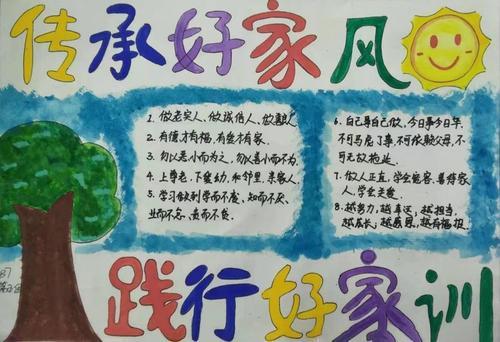 传承好家风
1. 做老实人,做诚信人,做真人
2. 有德才有福,有爱才有家.
3. 勿以恶小而为之,勿以善小而不为.
4. 上尊老,下爱幼,和邻里,亲家人.
5. 学习做到学而不厌,知而不
业而不
6. 自己事自己做,今日事今日毕,
不可马虎了事,不可依赖父母,不
可无故拖延.
7. 做人正直,学会宽容,善待家
人,学会关爱.
8. 越努力,越幸运,越担当,
越成长,越感恩,越有福报.
践行好家训